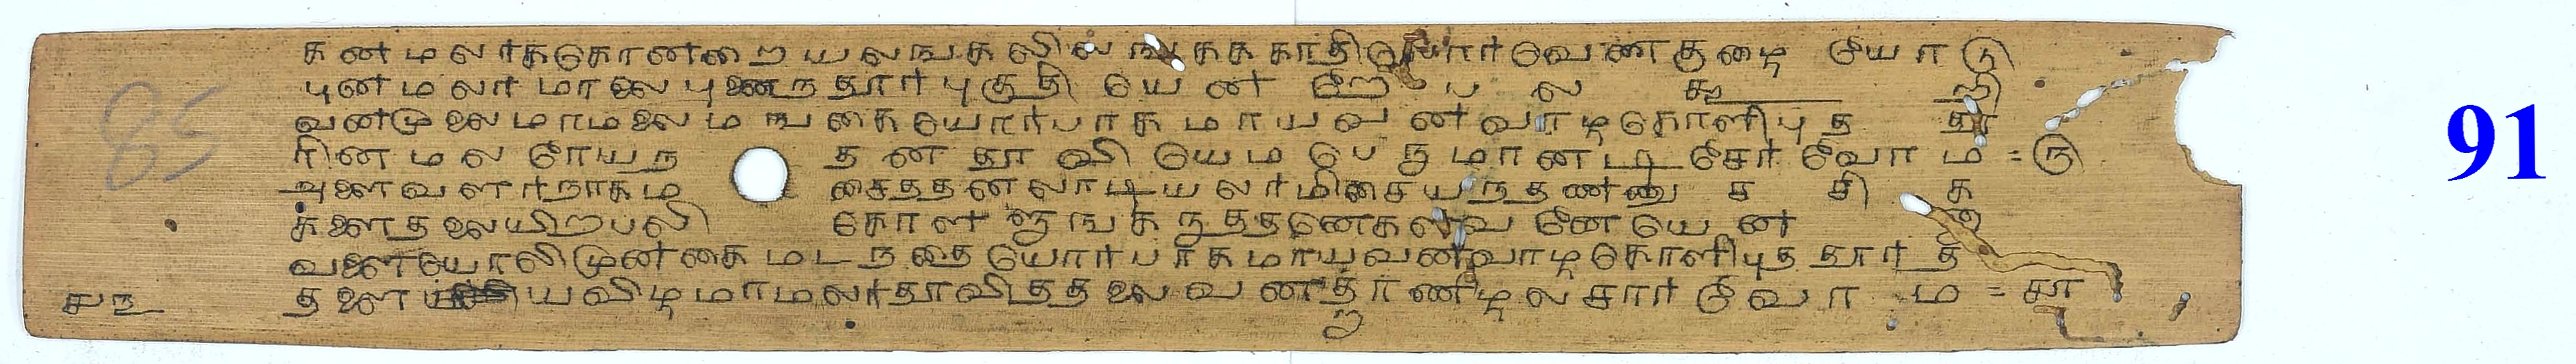 கனமலரககொனறையலஙகலிலஙகககாதிலொரவெணகுழை யொடு
புனமலரமாலைபுனைநதூரபுகுதி யெனறேபலகூறி
வனமுலைமாமலைமஙகையொரபாகமாயவனவாழகொளிபுததூ
ரினமலரேயநதனதூவியெமபெருமானடிசேரவோம = ௫
அளைவளரநாகமசைததனலாடியலரமிசையநதணனுசசிக
களைதலையிறபலிகொளளுஙகருததனேகளவனேயெனனா
வளையொலிமுனகைமடநதையொரபாகமாயவனவாழகொளிபுததூரத
தளையவிழமாமலரதூவிததலைவன